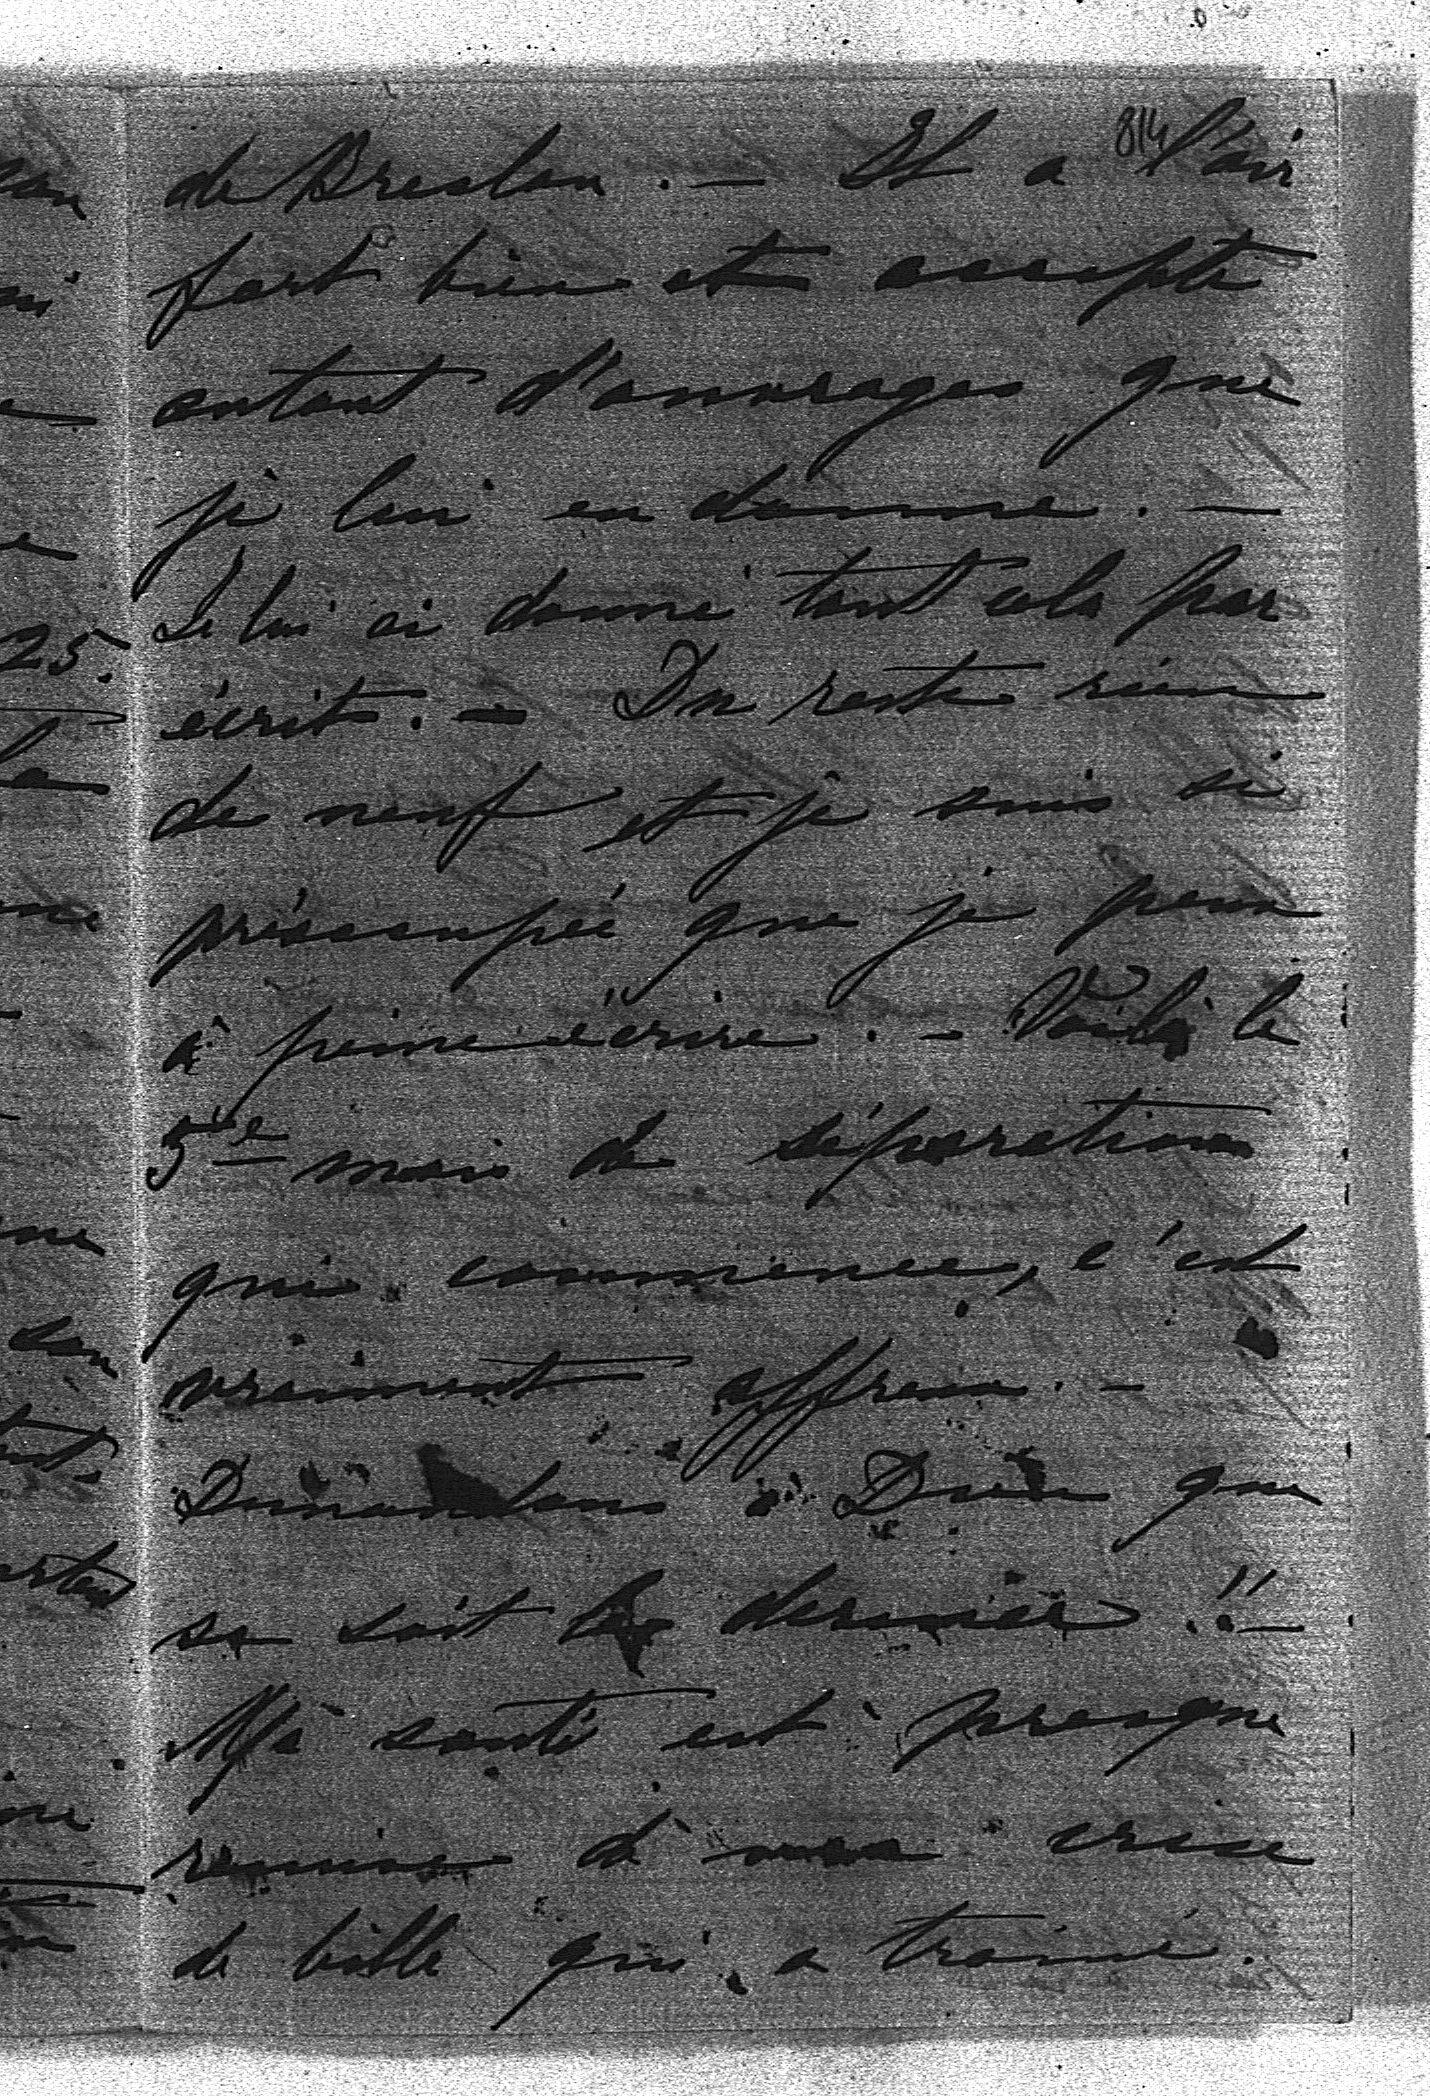 814
de Breslau. — Il a l'air
fort bien et accepte
autant d'ouvrages que
je lui en donne. —
Je lui ai donné tout cela par
écrit. — Du reste rien
de neuf et je suis si
préoccupée que je peux
à peine écrire. — Voilà le
5me mois de séparation
qui commence, c'est
vraiment affreux. —
Demandons à Dieu que
sa soit le dernier!! —
Ma santé est presque
remise de ma crise
de bille qui a trainé.